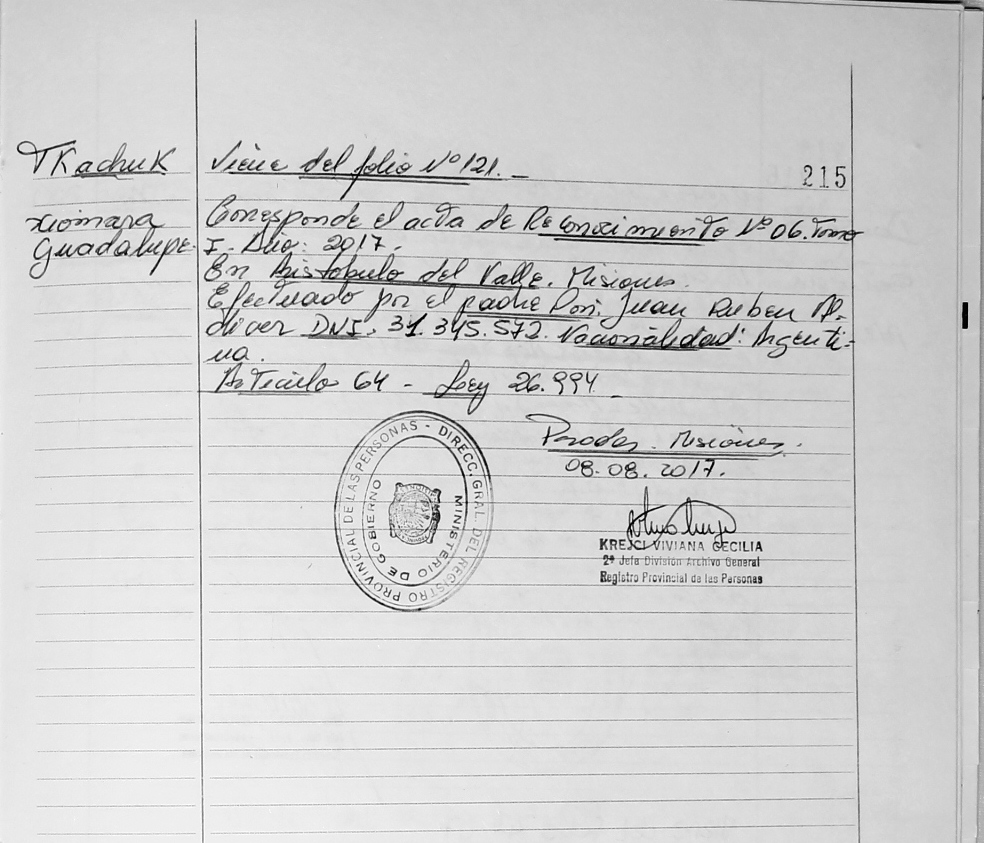 TKachuK
Xiomara
Guadalupe.
Viene del folio Nº 121.-
215
Corresponde el acta de Reconocimiento Nº 06. Tomo
I. Año: 2017.
En Aristobulo del Valle. Misiones.
Efectuado por el padre Don: Juan Ruben
DNI. 31.345.572. Nacionalidad: Argenti-
na.
Articulo 64 - Ley 26.994 -
Posadas. Misiones.
08.08.2017.
PROVINCIAL DE LAS PERSONAS - DIRECC. GRAL. DEL REGISTRO
MINISTERIO DE GOBIERNO
KREJCI VIVIANA CECILIA
2ª Jefa División Archivo General
Registro Provincial de las Personas